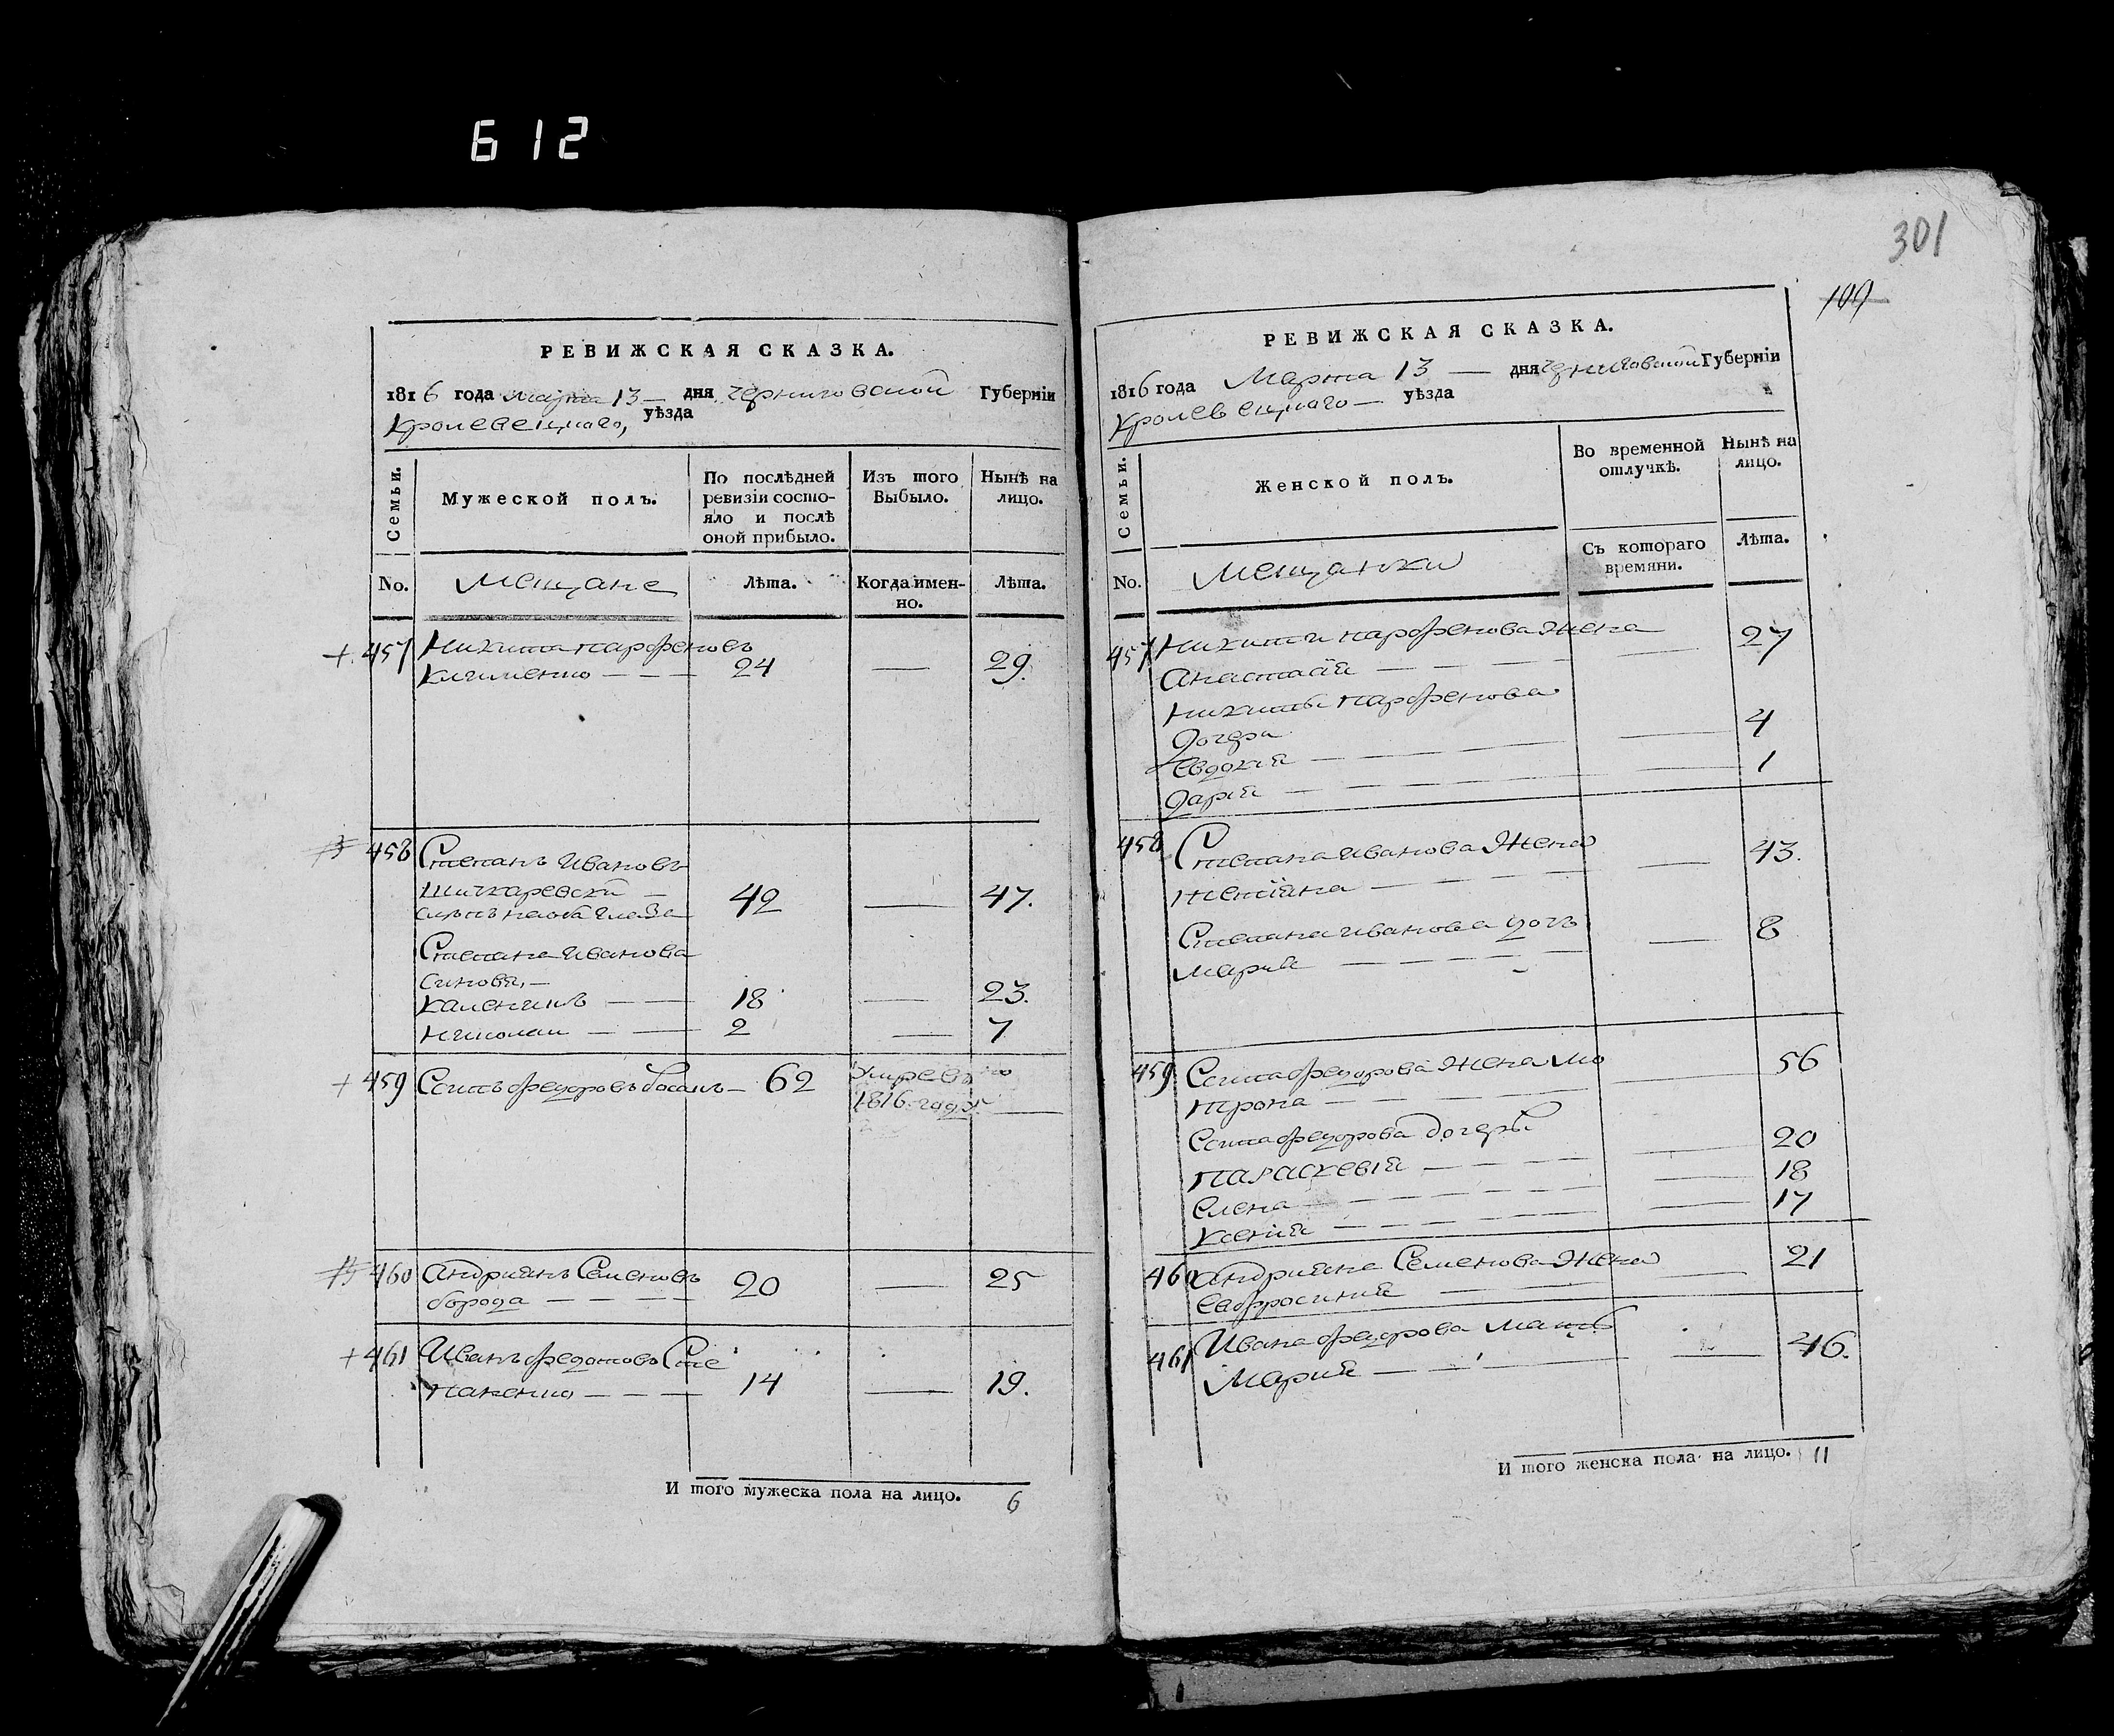 612
301
109
РЕВИЖСКАЯ СКАЗКА.
1816 года марта 13 — дня черниговской Губерніи
Кролевецкаго, уѣзда
Семьи.
Мужеской полъ.
По послѣдней ревизіи состо-
яло и послѣ
оной прибыло.
Изъ того
Выбыло.
Нынѣ на
лицо.
No.
Мещане
Лѣта.
Когда имен-
но.
Лѣта.
+ 457 Никита парфеновъ
Клименко — — — 24 — 29.
458 Степанъ Ивановъ
Шичкаревски — 42 — 47.
слѣпъ на оба глаза
Степана Иванова
синовя, —
Каленикъ — — 18 — 23.
Николаи — — 2 — 7
+ 459 Есипъ федоровъ босакъ — 62 умре
1816 года
460 Андриянъ Семеновъ 20 — 25
борода — — — —
+ 461 Иванъ федотовъ Сте
паненко — — — 14 — 19.
И того мужеска пола на лицо. 6
РЕВИЖСКАЯ СКАЗКА.
1816 года Марта 13 — дня черниговской Губерніи
Кролевецкаго — уѣзда
Семьи.
Женской полъ.
Во временной
отлучкѣ.
Нынѣ на
лицо.
No.
Мещанки
Съ котораго
времяни.
Лѣта.
457 Никити парфенова Жена — 27
Анастасія — — — —
Никиты парфенова
Дочери
Евдокия — — — 4
Дария — — — — 1
458 Степана Иванова Жена — 43.
Степана Иванова дочъ — 8
Мария — — — — —
459 Есипа федорова Жена Мо — 56
трона — — — — —
Есипа федорова дочеры
параскевія — — — — 20
Елена — — — — — 18
Ксения — — — — — 17
460 Андрияна Семенова Жена — 21
Евфросиния —
461 Ивана федорова мать
Мария — — — 46.
И того женска пола на лицо. 11